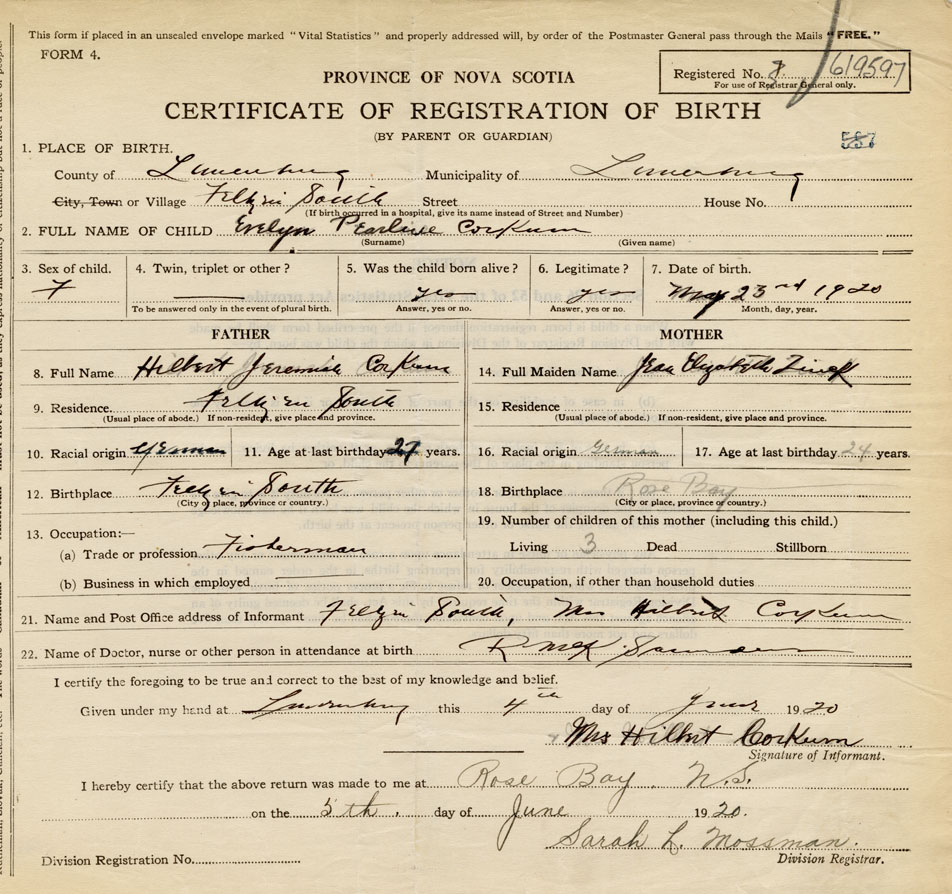 This form if placed in an unsealed envelope marked "Vital Statistics" and properly addressed will, by order of the Postmaster General pass through the Mails "FREE."
FORM 4.
PROVINCE OF NOVA SCOTIA
Registered No. 619597
For use of Registrar General only.
CERTIFICATE OF REGISTRATION OF BIRTH
(BY PARENT OR GUARDIAN)
1. PLACE OF BIRTH.
County of Lunenburg Municipality of Lunenburg
City, Town or Village Feltzen South Street House No.
(If birth occurred in a hospital, give its name instead of Street and Number)
2. FULL NAME OF CHILD Evelyn Pearline Corkum
(Surname) (Given name)
3. Sex of child. 4. Twin, triplet or other? 5. Was the child born alive? 6. Legitimate? 7. Date of birth.
F yes yes May 23rd 1920
To be answered only in the event of plural birth. Answer, yes or no. Answer, yes or no. Month, day, year.
FATHER MOTHER
8. Full Name Hilbert Jeremiah Corkum 14. Full Maiden Name Jean Elizabeth Zinck
9. Residence. Feltzen South 15. Residence
(Usual place of abode.) If non-resident, give place and province. (Usual place of abode.) If non-resident, give place and province.
10. Racial origin German 11. Age at last birthday 27 years. 16. Racial origin German 17. Age at last birthday 24 years.
12. Birthplace Feltzen South 18. Birthplace Rose Bay
(City or place, province or country.) (City or place, province or country.)
13. Occupation:— 19. Number of children of this mother (including this child.)
(a) Trade or profession Fisherman Living 3 Dead Stillborn
(b) Business in which employed 20. Occupation, if other than household duties
21. Name and Post Office address of Informant Feltzen South, Mrs Hilbert Corkum
22. Name of Doctor, nurse or other person in attendance at birth
I certify the foregoing to be true and correct to the best of my knowledge and belief.
Given under my hand at Lunenburg this 4th day of June 1920
Mrs Hilbert Corkum
Signature of Informant.
I hereby certify that the above return was made to me at Rose Bay N.S.
on the 5th. day of June 1920.
Sarah L. Mossman.
Division Registration No. Division Registrar.